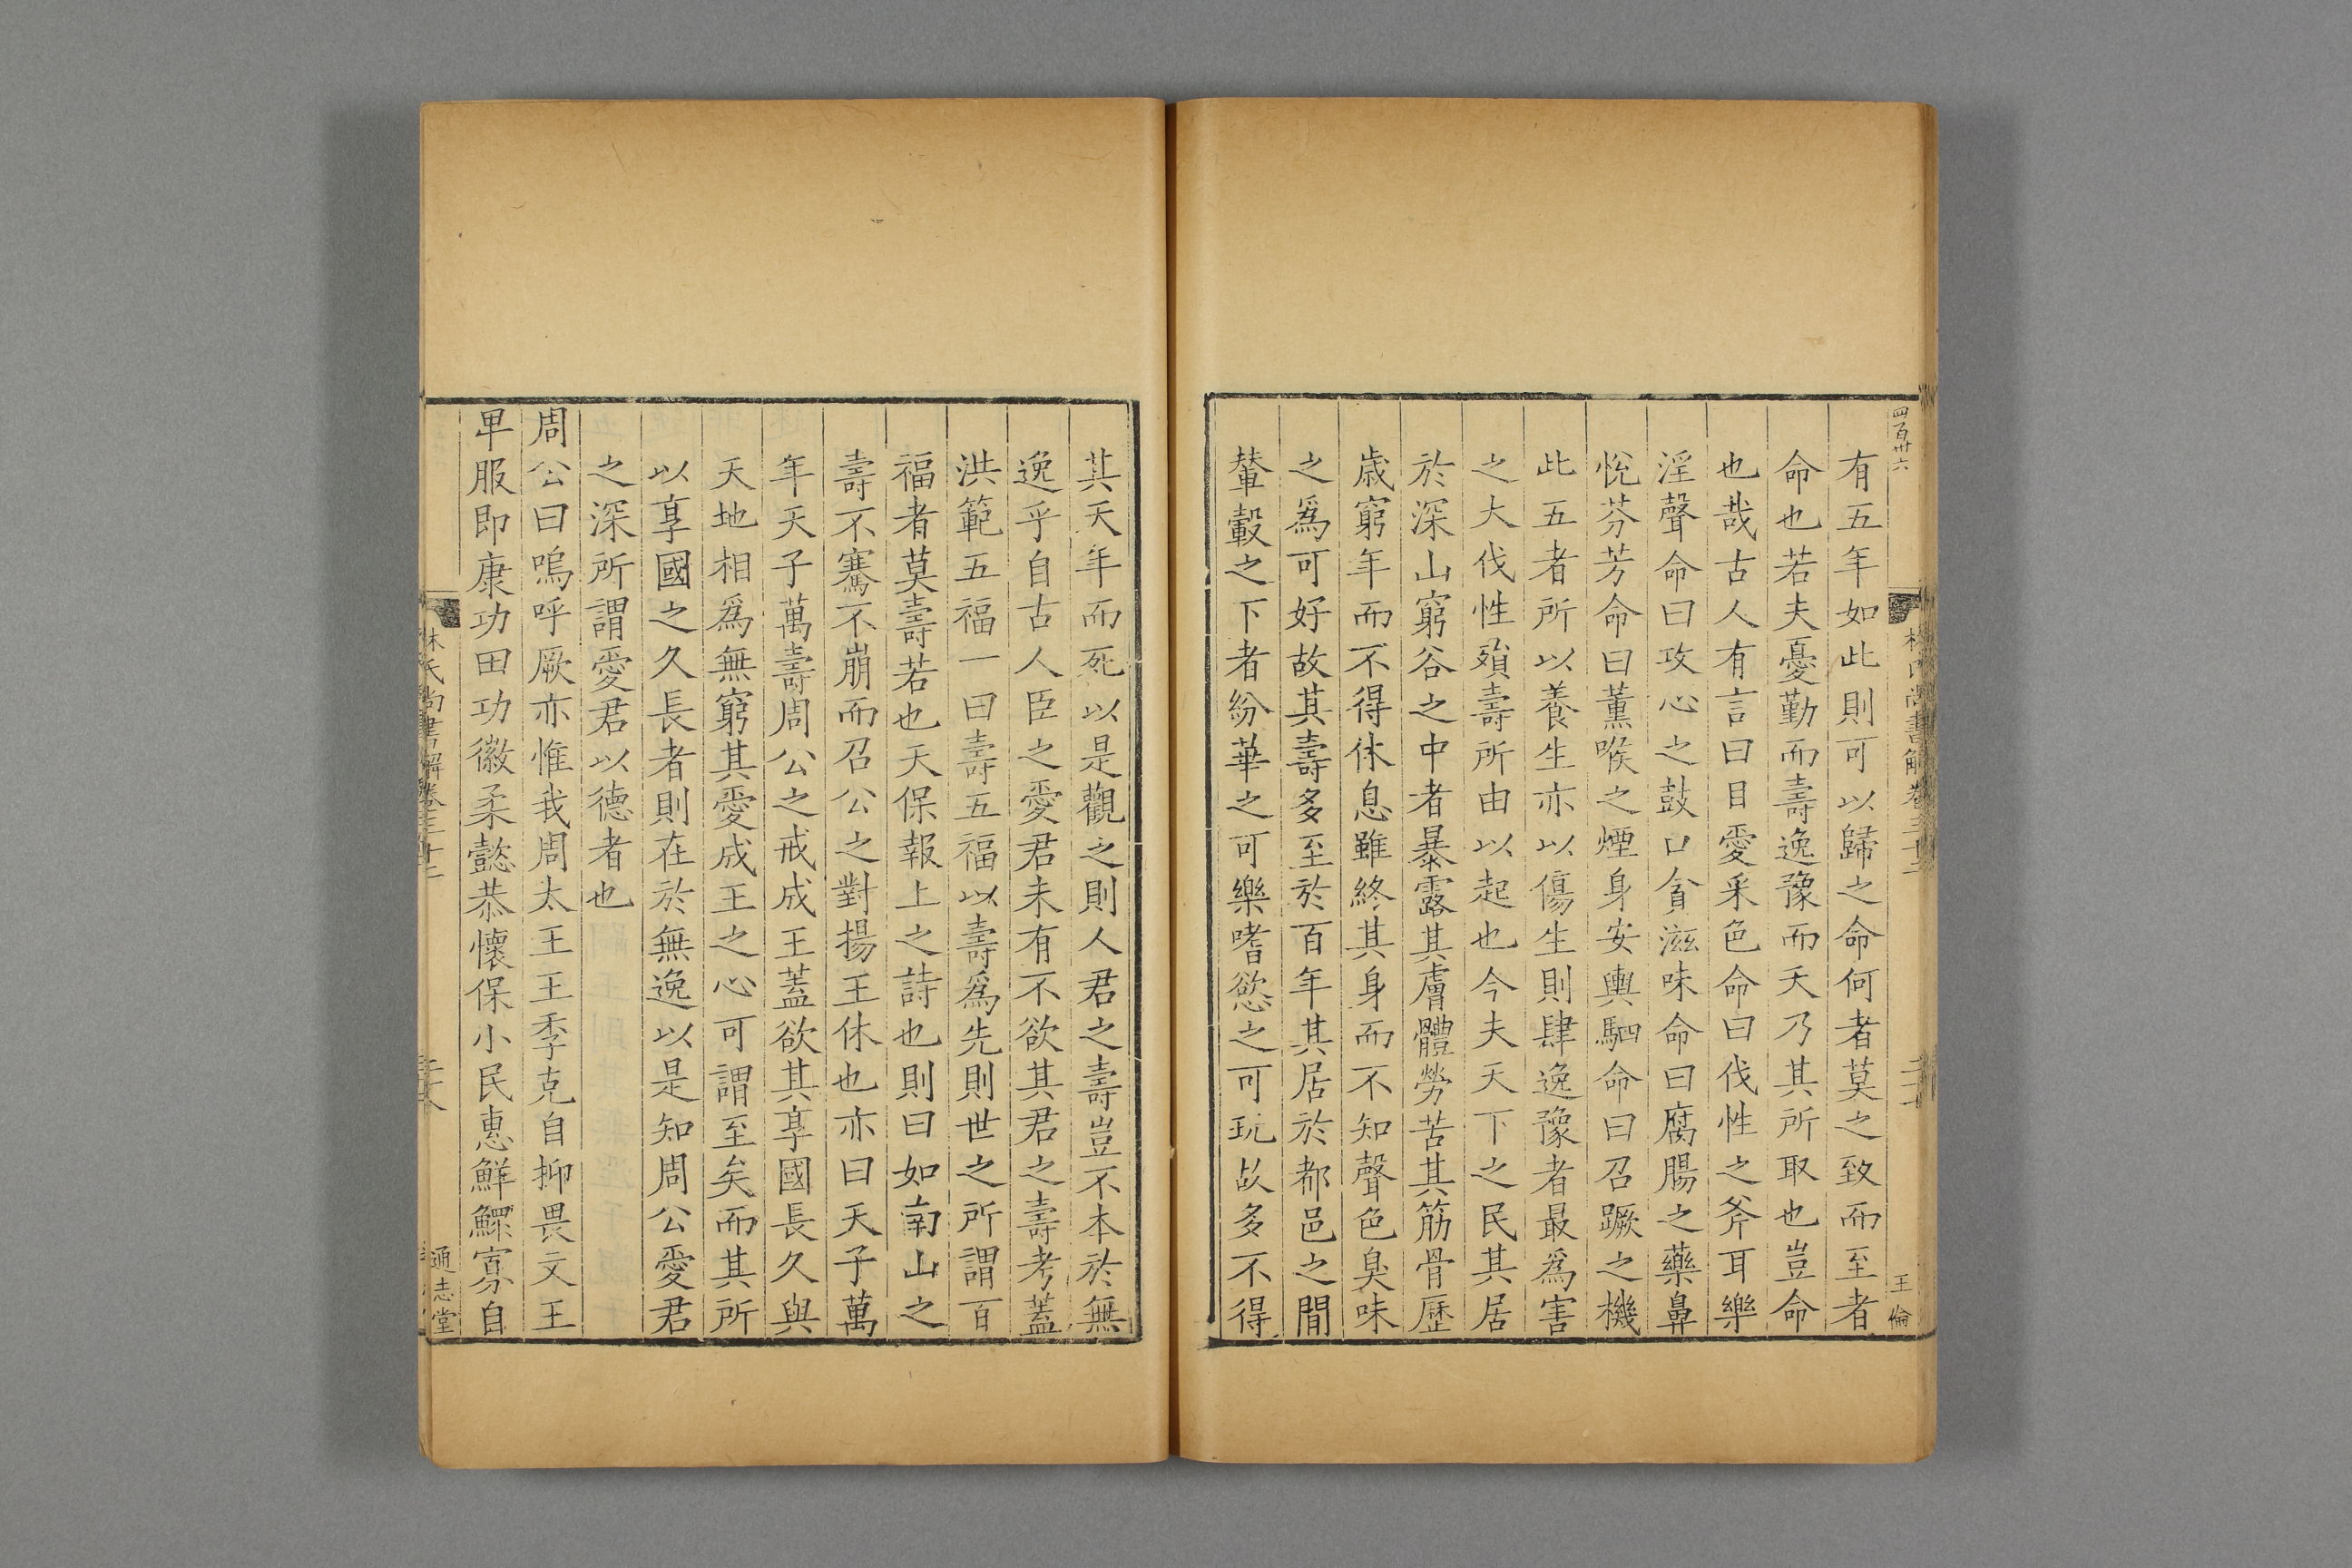 四百卅六
王倫
有五年如此則可以歸之命何者莫之致而至者
命也若夫憂勤而壽逸豫而夭乃其所取也豈命
也哉古人有言曰目愛采色命曰伐性之斧耳樂
淫聲命曰攻心之鼓口貪滋味命曰腐腸之藥鼻
悅芬芳命曰薰喉之煙身安輿駟命曰召蹶之機
此五者所以養生亦以傷生則肆逸豫者最爲害
之大伐性殞壽所由以起也今夫天下之民其居
於深山窮谷之中者暴露其膚體勞苦其筋骨歷
歳窮年而不得休息雖終其身而不知聲色臭味
之爲可好故其壽多至於百年其居於都邑之閒
輦轂之下者紛華之可樂嗜慾之可玩故多不得
其天年而死以是觀之則人君之壽豈不本於無
逸乎自古人臣之愛君未有不欲其君之壽考蓋
洪範五福一曰壽五福以壽爲先則世之所謂百
福者莫壽若也天保報上之詩也則曰如南山之
壽不騫不崩而召公之對揚王休也亦曰天子萬
年天子萬壽周公之戒成王蓋欲其享國長久與
天地相爲無窮其愛成王之心可謂至矣而其所
以享國之久長者則在於無逸以是知周公愛君
之深所謂愛君以德者也
周公曰嗚呼厥亦惟我周太王王季克自抑畏文王
卑服即康功田功徽柔懿恭懷保小民惠鮮鰥寡自
林氏尚書解卷三十二
通志堂